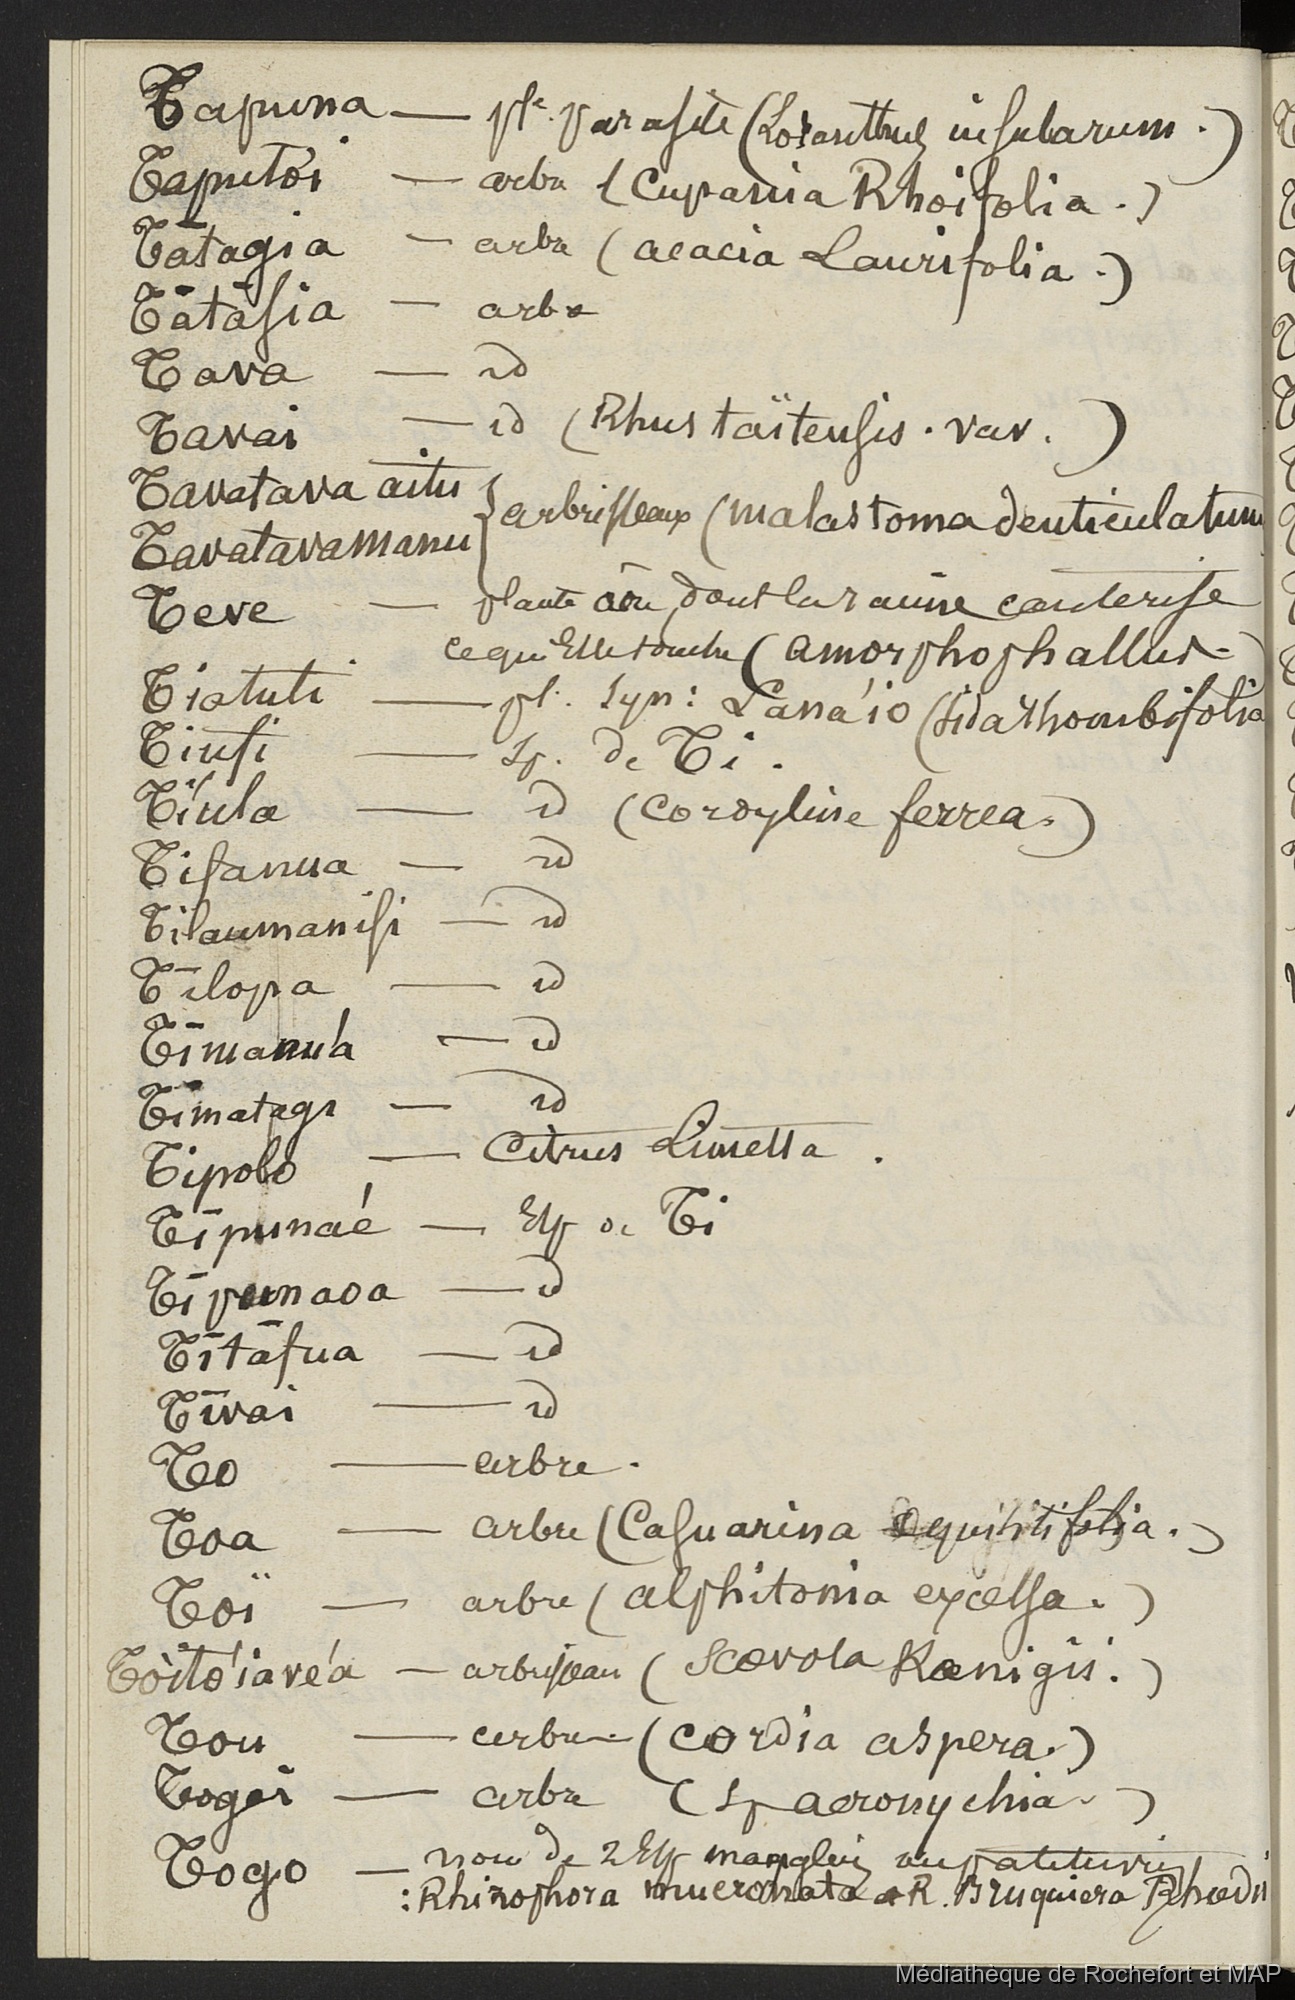 Tapuna — pl<sup>te</sup>. parasite (Loranthus insularum.)
Taputoi — arbre (Cupania Rhoifolia.)
Tātagia — arbre (acacia Laurifolia.)
Tātāsia — arbre
Tava — id
Tavai — id (Rhus taïtensis. var.)
Tavatava aitu
Tavatavamanu } arbrisseaux (malastoma denticulatum
Teve — plante dont la racine cauterise
ce qu'Elle touche (amorphophallus.)
Tiatuti — pl. Syn: Lana'io (Sida rhombifolia
Tiusi — Sp. de Ti.
Ti'ula — id (Cordyline ferrea.)
Tifanua — id
Tilaumanisi — id
Tīlopa — id
Tīmanu'a — id
Tīmatagi — id
Tipolo — Citrus Limetta.
Tīpunaé — Esp de Ti
Tīpunaoa — id
Tītāfua — id
Tīvai — id
To — arbre.
Toa — arbre (Casuarina equisitifolia.)
Toï — arbre (alphitonia excelsa.)
Toito'iave'a — arbrisseau (Scœvola Kœnigii.)
Tou — arbre (cordia aspera.)
Togai — arbre (sp acronychia.)
Togo — nom de 2 Esp mangliers
: Rhizophora mucronata et R. Bruquiera Rhedii
Médiathèque de Rochefort et MAP